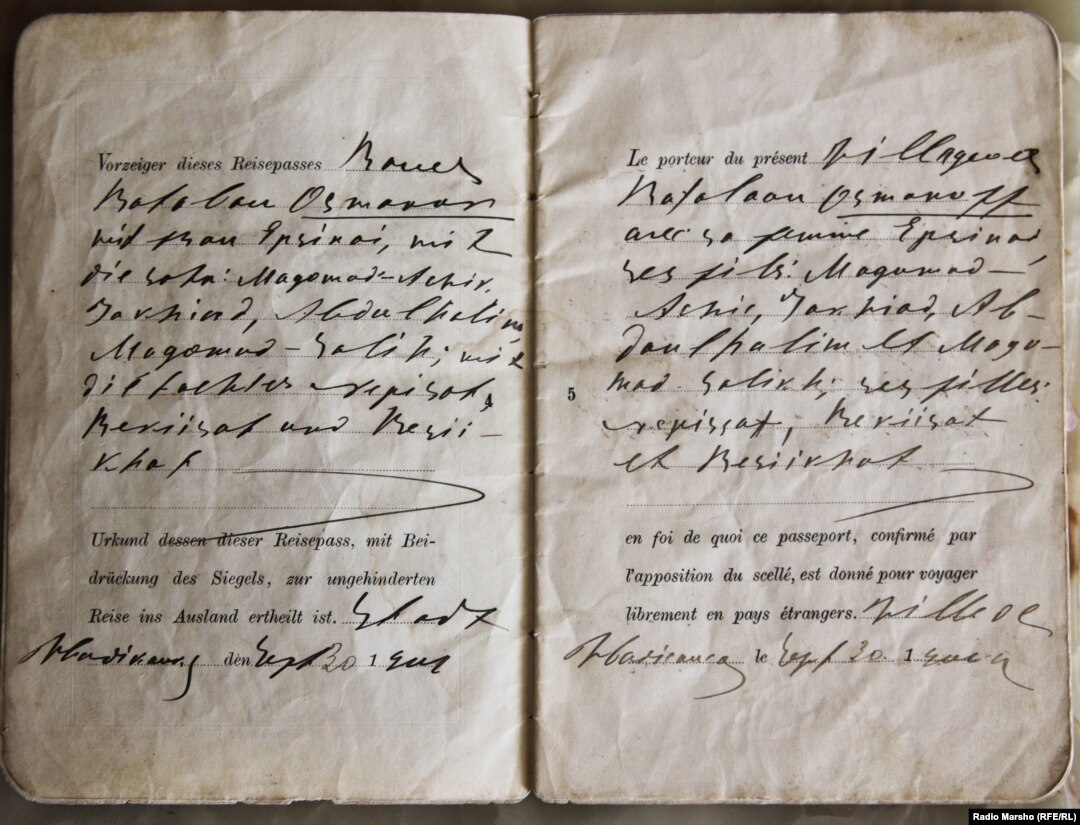 Vorzeiger dieses Reisepasses Bauer
Batalau Osmanow
mit frau Epsinoi, mit
die sohn: Magomad-Achir,
Abdulhalim,
Magomad-Salich; mit
die tochter
4
Beriisat und Besii-
khat
Urkund dessen dieser Reisepass, mit Bei-
drückung des Siegels, zur ungehinderten
Reise ins Ausland ertheilt ist. Stadt
Wladicaucas den Sept 30 1
Le porteur du présent villageois
Batalaou Osmanoff
avec sa femme Epsinoi,
ses fils: Magomad-
Achir, Ab-
doulhalim et Mago-
mad-Salich; ses filles:
5
Beriisat
et Besiikhat
en foi de quoi ce passeport, confirmé par
l'apposition du scellé, est donné pour voyager
librement en pays étrangers. Ville de
Wladicaucas le Sept 30 1
Radio Marsho (RFE/RL)